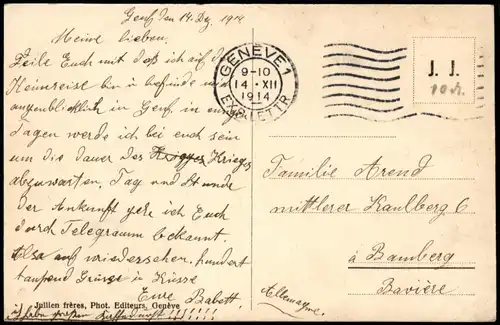 Genf den 14 Dez. 1914
Meine lieben.
Teile Euch mit daß ich auf der
Heimreise bin u. befinde mich
augenblicklich in Genf. in
tagen werde ich bei euch sein
um die Dauer des Krieges
abzuwarten, Tag und Stunde
der Ankunft gebe ich Euch
durch Telegramm bekannt.
Also auf wiedersehen. hundert
tausend Grüsse u Küsse
Eure Babett.
Jullien frères, Phot. Editeurs, Genève
GENEVE 1
9-10
14-XII
1914
EXP. LETTR.
J. J.
Familie Arend
mittlerer Kaulberg 6
à Bamberg
Bavière
Allemagne.